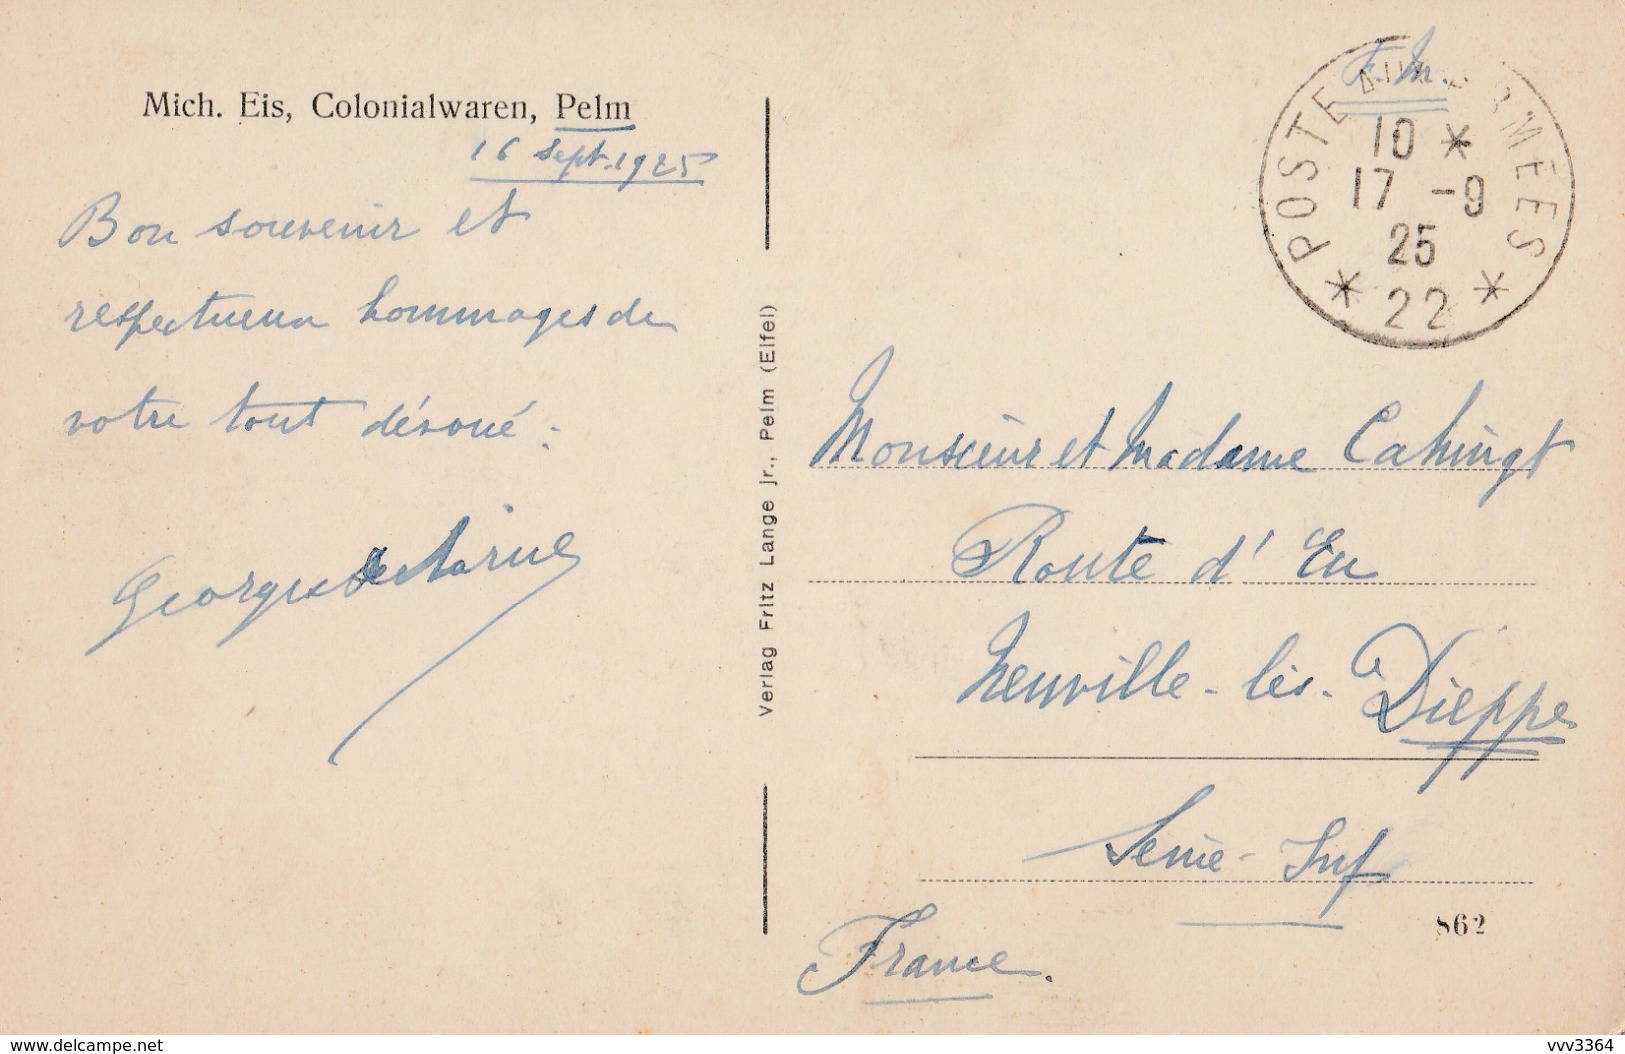 Mich. Eis, Colonialwaren, Pelm
16 Sept. 1925
Bon souvenir et
respectueux hommages de
votre tout dévoué :
Georges
Verlag Fritz Lange jr., Pelm (Eifel)
F. M.
POSTE AUX ARMÉES
10 *
17 -9
25
* 22 *
Monsieur et Madame Cahingt
Route d' Eu
Neuville-lès-Dieppe
Seine-Inf
France.
862
www.delcampe.net
vvv3364